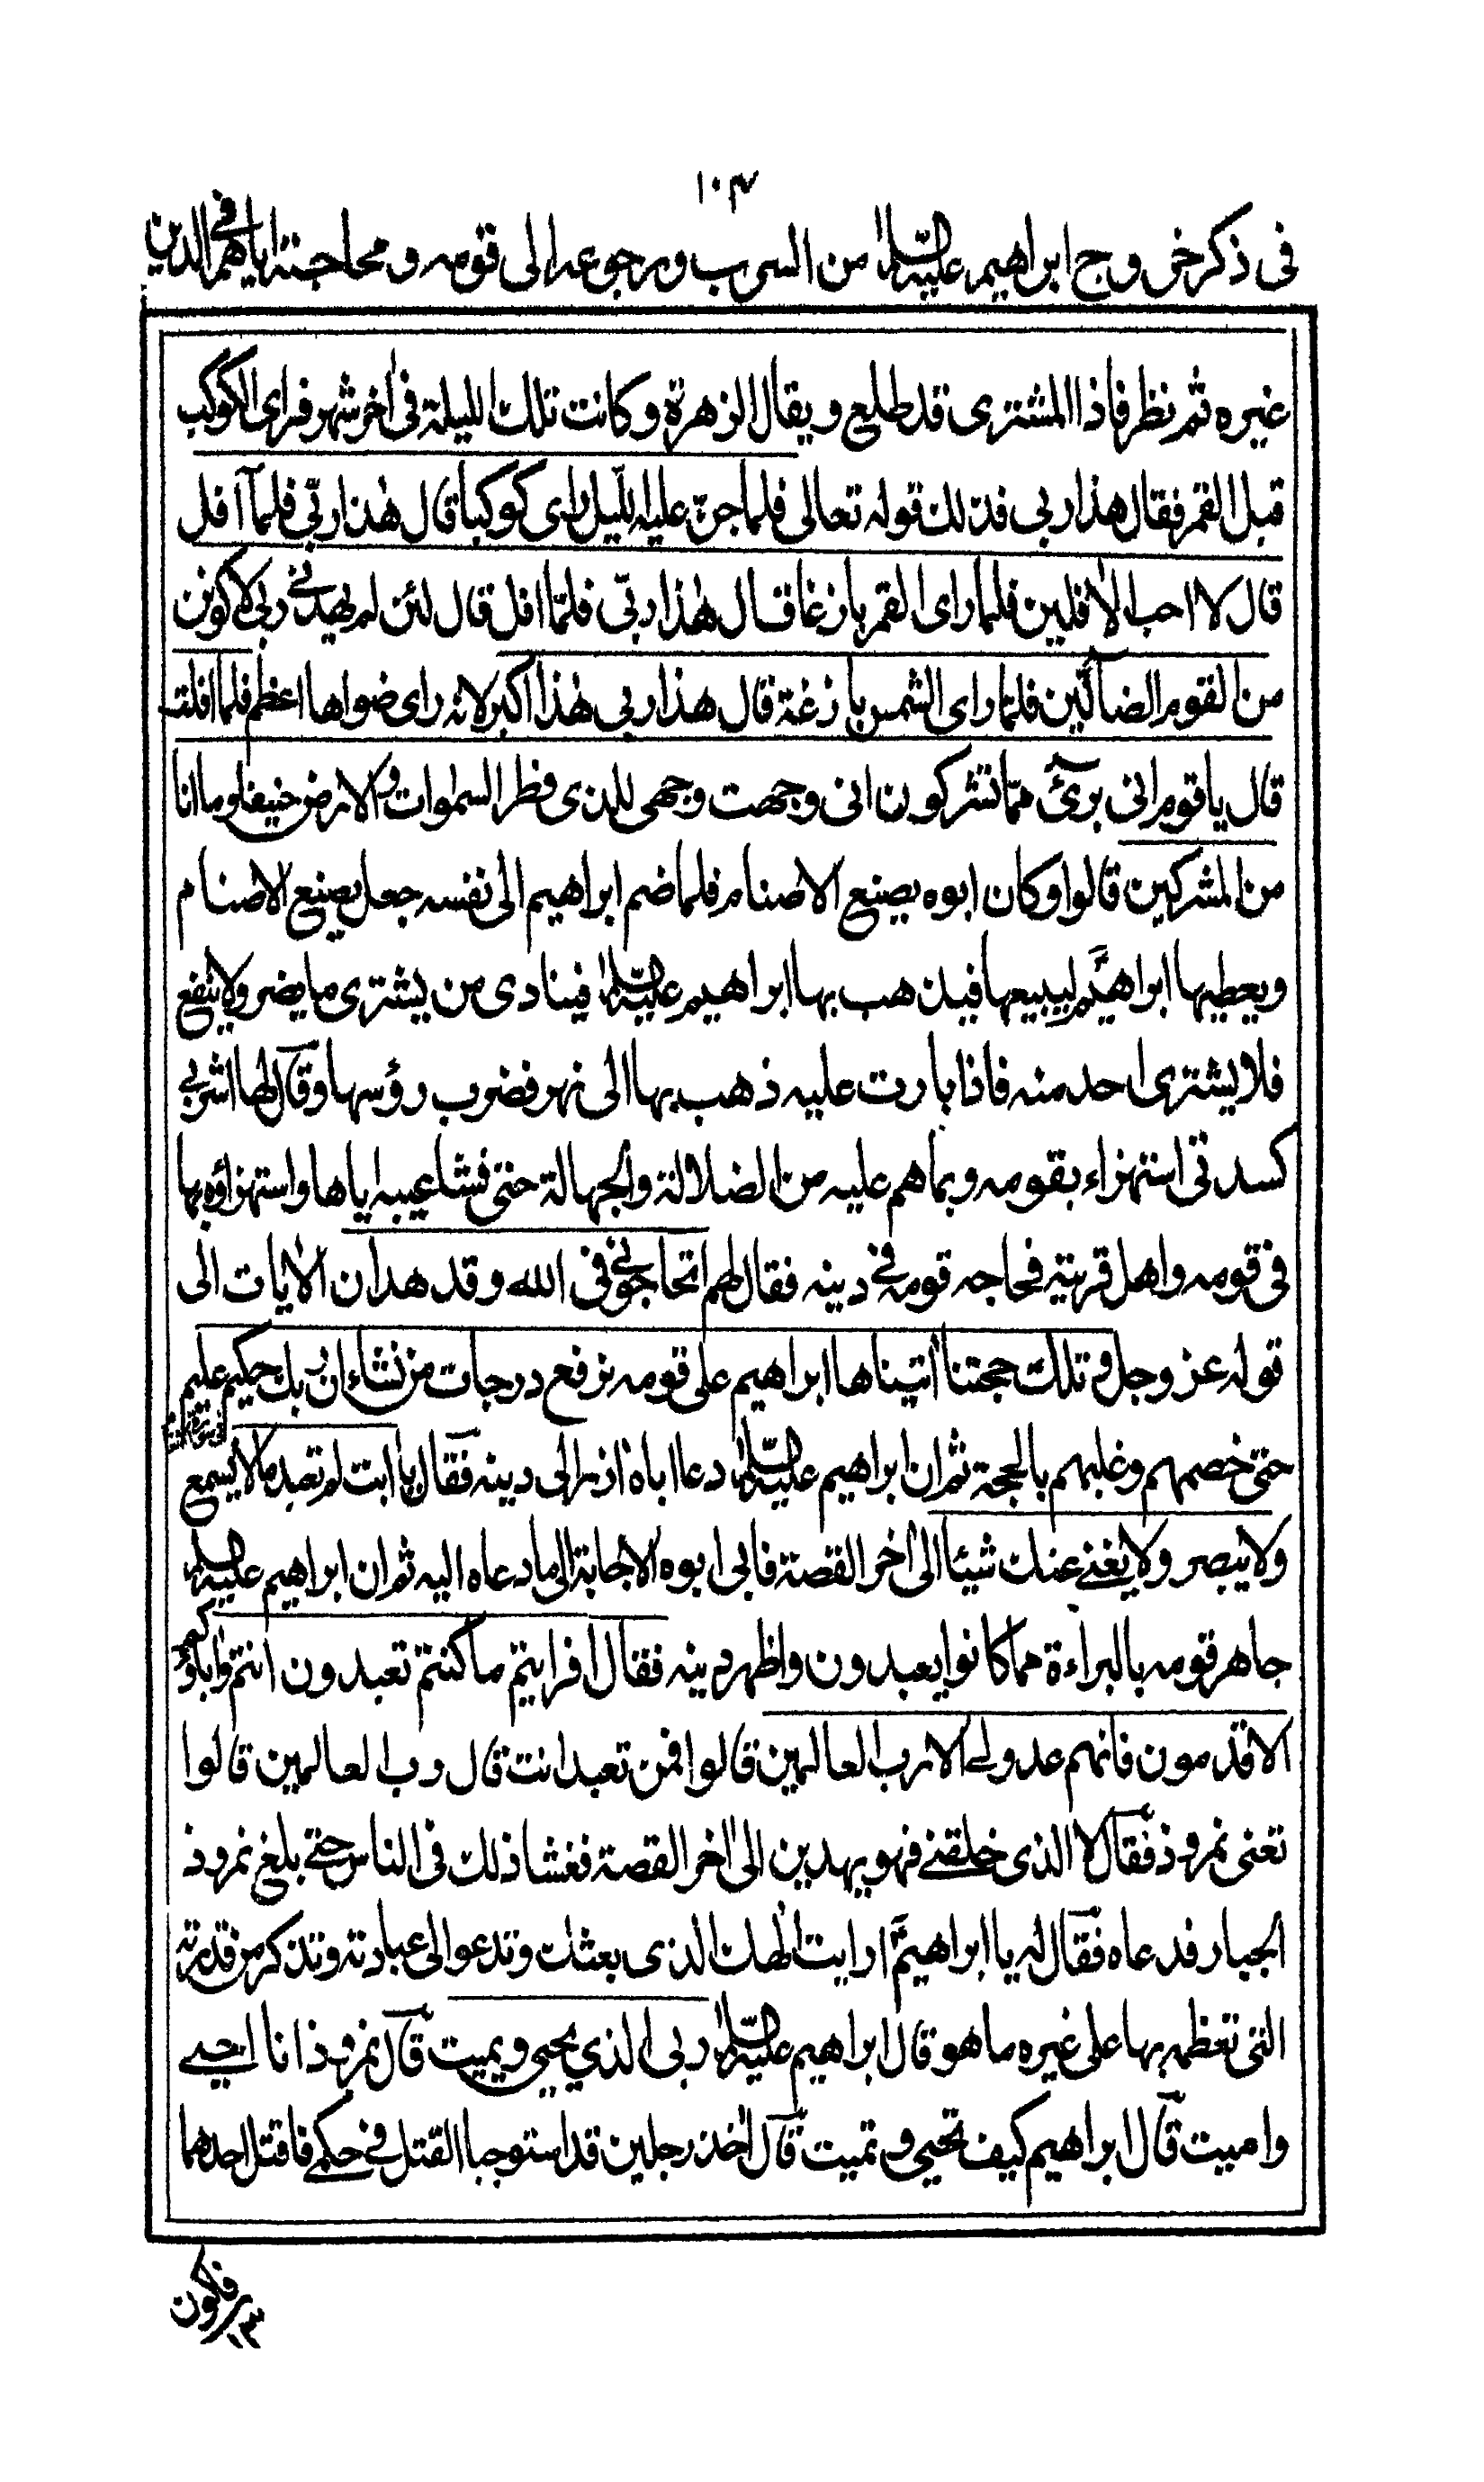 ١٠٣
فى ذكر خروج ابراهيم عليه السلام من السرب ورجوعه الى قومه ومحاجته اياهم فى الدين
غيره ثم نظر فاذا المشترى قد طلع ويقال الزهرة وكانت تلك الليلة فى اٰخر شهر فراى الكوكب
قبل القمر فقال هذا ربى فذلك قوله تعالى فلما جنّ عليه اللّيل راى كوكبا قال هٰذا ربّى فلمآ افل
قال لا احب الاٰفلين فلما راى القمر بازغا قال هٰذا ربّى فلمّا افل قال لئن لم يهدنى ربى لاكونن
من القوم الضآلّين فلمّا راى الشمس بازغة قال هذا ربى هٰذا اكبر لانه راى ضواها اعظم فلما افلت
قال ياقوم انى برئ ممّا تشركون انى وجهت وجهى للذى فطر السمٰوات والارض حنيفا وما انا
من المشركين قالوا وكان ابوه يصنع الاصنام فلما ضم ابراهيم الى نفسه جعل يصنع الاصنام
ويعطيها ابراهيم ليبيعها فيذهب بها ابراهيم عليه السلام فينادى من يشترى ما يضر ولا ينفع
فلا يشترى احد منه فاذا بارت عليه ذهب بها الى نهر فضرب رؤسها وقال لها اشربى
كسدتى استهزاء بقومه وبما هم عليه من الضلالة والجهالة حتى فشا عيبه اياها واستهزاؤه بها
فى قومه واهل قريته فحاجه قومه فى دينه فقال لهم اتحاجونى فى الله وقد هدان الاٰيات الى
قوله عز وجل وتلك حجتنا اٰتيناها ابراهيم على قومه نرفع درجات من نشاء ان ربك حكيم عليم
حتى خصمهم وغلبهم بالحجة ثم ان ابراهيم عليه السلام دعا اباه اٰزر الى دينه فقال يا ابت لم تعبد ما لا يسمع
ولا يبصر ولا يغنى عنك شيئا الى اٰخر القصة فابى ابوه الاجابة الى ما دعاه اليه ثم ان ابراهيم عليه السلام
جاهر قومه بالبراءة مما كانوا يعبدون واظهر دينه فقال افرايتم ما كنتم تعبدون انتم واٰباؤكم
الاقدمون فانهم عدو لى الا رب العالمين قالوا فمن تعبد انت قال رب العالمين قالوا
تعنى نمروذ فقال لا الذى خلقنى فهو يهدين الى اٰخر القصة ففشا ذلك فى الناس حتى بلغ نمروذ
الجبار فدعاه فقال له يا ابراهيم ارايت الٰهك الذى بعثك وتدعوا الى عبادته وتذكر من قدرته
التى تعظمه بها على غيره ما هو قال ابراهيم عليه السلام ربى الذي يحيى ويميت قال نمروذ انا احيى
واميت قال ابراهيم كيف تحيى وتميت قال اٰخذ رجلين قد استوجبا القتل فى حكمى فاقتل احدهما
فاكون